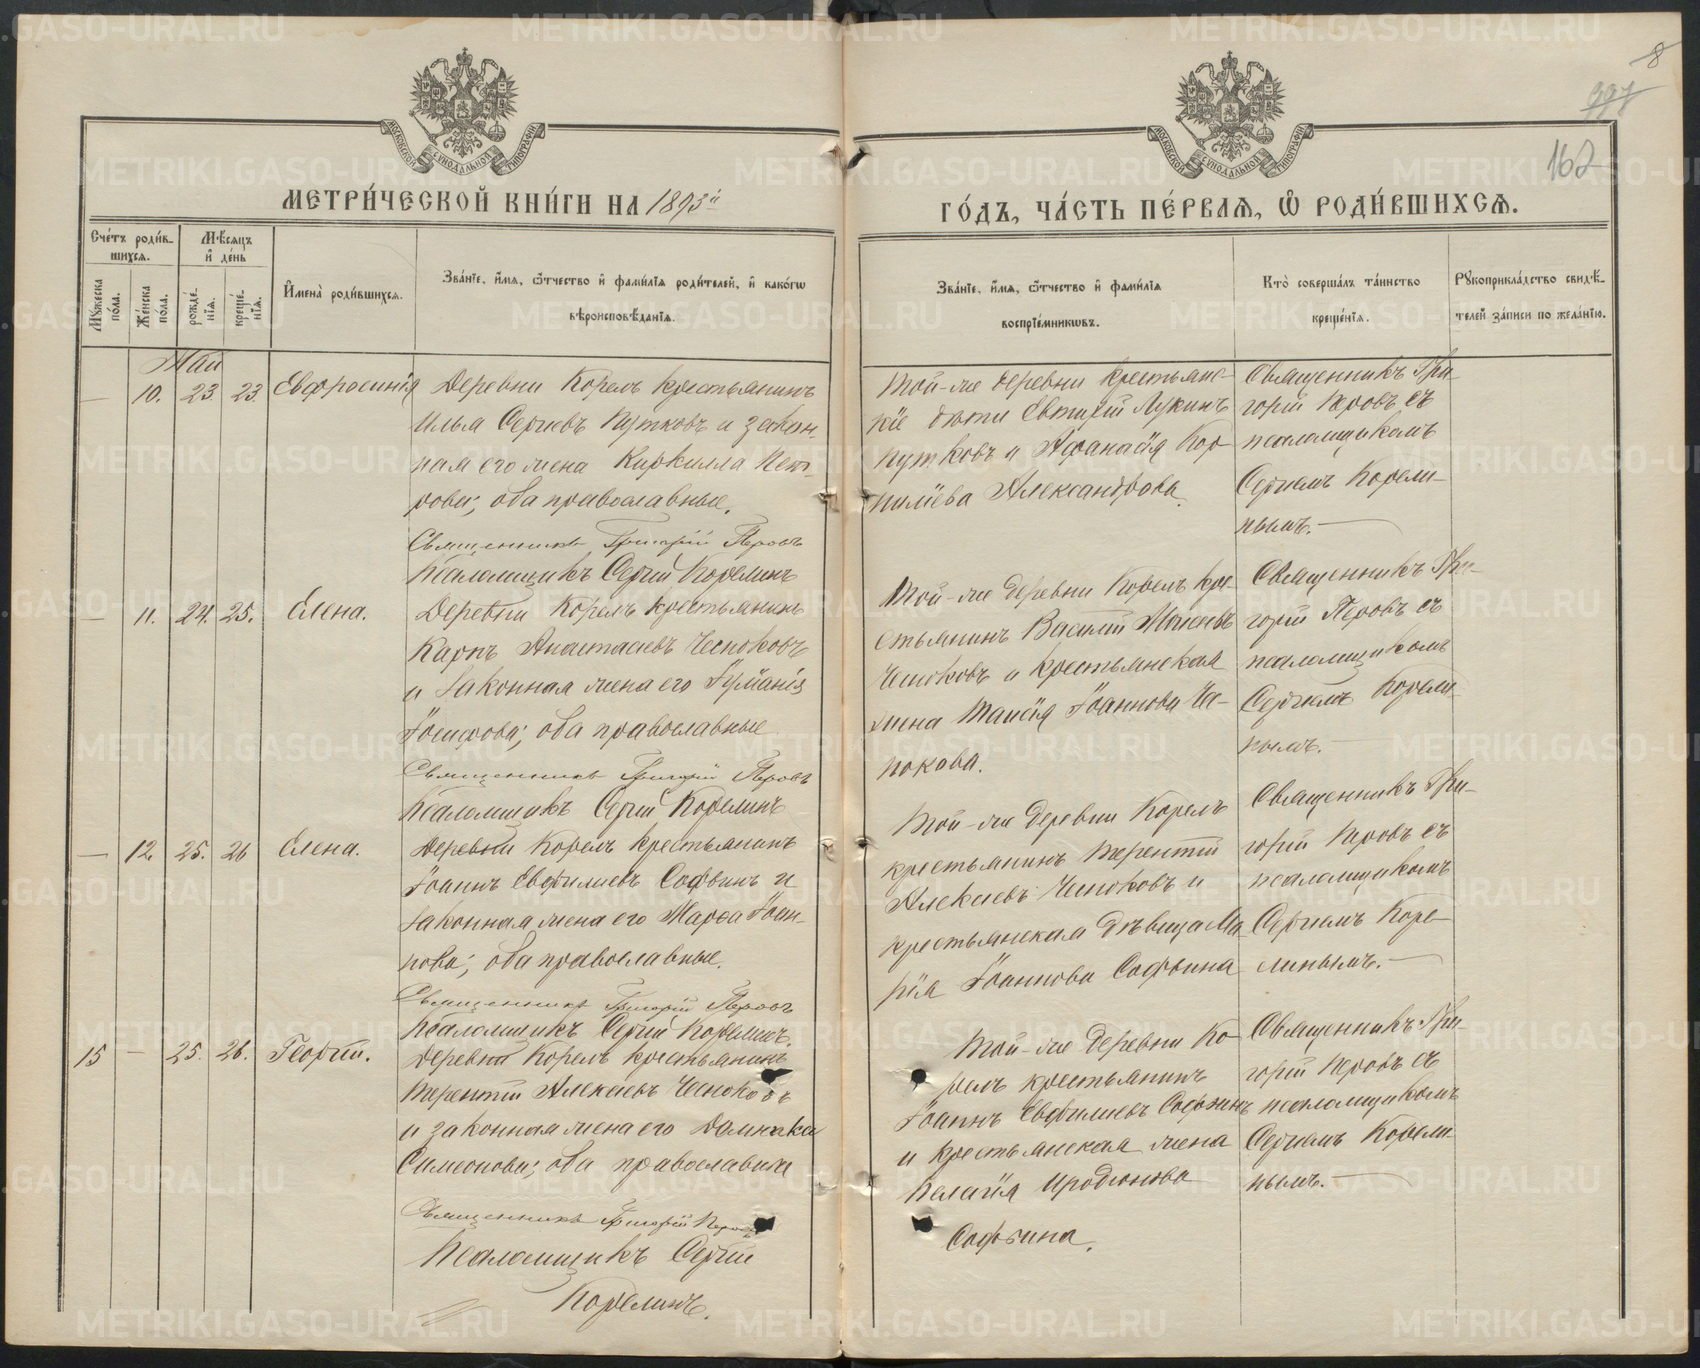 МЕТРИ́ЧЕСКОЙ КНИ́ГИ НА 1893й
ГО́ДЪ, ЧА́СТЬ ПЕ́РВАѦ, Ѽ РОДИ́ВШИХСѦ.
8
162
Сче́тъ роди́вшихсѧ.
Мѣ́сѧцъ и҆ де́нь
Мꙋ́жеска по́ла.
Же́нска по́ла.
рожде́нїѧ.
креще́нїѧ.
И҆мена̀ роди́вшихсѧ.
Зва́нїе, и҆́мѧ, ѻ҆́тчество и҆ фами́лїѧ роди́телей, и҆ како́гѡ
вѣроисповѣ́данїѧ.
Зва́нїе, и҆́мѧ, ѻ҆́тчество и҆ фами́лїѧ
воспрїе́мникѡвъ.
Кто̀ соверша́лъ та́инство
креще́нїѧ.
Рꙋкоприкла́дство свидѣ́-
телей за́писи по жела́нїю.
Май
— 10. 23. 23. Евфросинія
Деревни Корелъ крестьянинъ
Илья Сергіевъ Путковъ и закон-
ная его жена Кирилла Пет-
рова; оба православные.
Священникъ Григорій Перовъ
Псаломщикъ Сергій Корелинъ
Той-же деревни крестьянс-
кіе дѣти Евтихій Лукинъ
Путковъ и Афанасія Кор-
нилїева Александрова.
Священникъ Гри-
горій Перовъ съ
псаломщикомъ
Сергіемъ Корели-
нымъ.
— 11. 24. 25. Елена.
Деревни Корелъ крестьянинъ
Карпъ Анастасіевъ Чесноковъ
и законная жена его Іуліанія
Іосифова; оба православные
Священникъ Григорій Перовъ
Псаломщикъ Сергій Корелинъ
Той-же деревни Корелъ кре-
стьянинъ Василій Моисеевъ
Чесноковъ и крестьянская
жена Таисія Іоаннова Че-
нокова.
Священникъ Гри-
горій Перовъ съ
псаломщикомъ
Сергіемъ Корели-
нымъ.
— 12. 25. 26 Елена.
Деревни Корелъ крестьянинъ
Іоаннъ Евфиміевъ Софьинъ и
законная жена его Марѳа Іоан-
нова; оба православные.
Священникъ Григорій Перовъ
Псаломщикъ Сергій Корелинъ.
Той-же деревни Корелъ
крестьянинъ Терентій
Алексіевъ Чесноковъ и
крестьянская дѣвица Ма-
рія Іоаннова Софьина
Священникъ Гри-
горій Перовъ съ
псаломщикомъ
Сергіемъ Коре-
линымъ.
15 — 25. 26. Георгій.
Деревни Корелъ крестьянинъ
Терентій Алексіевъ Чесноковъ
и законная жена его Домника
Симеонова; оба православные
Священникъ Григорій Перовъ
Псаломщикъ Сергій
Корелинъ.
Той-же деревни Ко-
релъ крестьянинъ
Іоаннъ Евфиміевъ Софьинъ
и крестьянская жена
Пелагія Иродіонова
Софьина.
Священникъ Гри-
горій Перовъ съ
псаломщикомъ
Сергіемъ Корели-
нымъ.